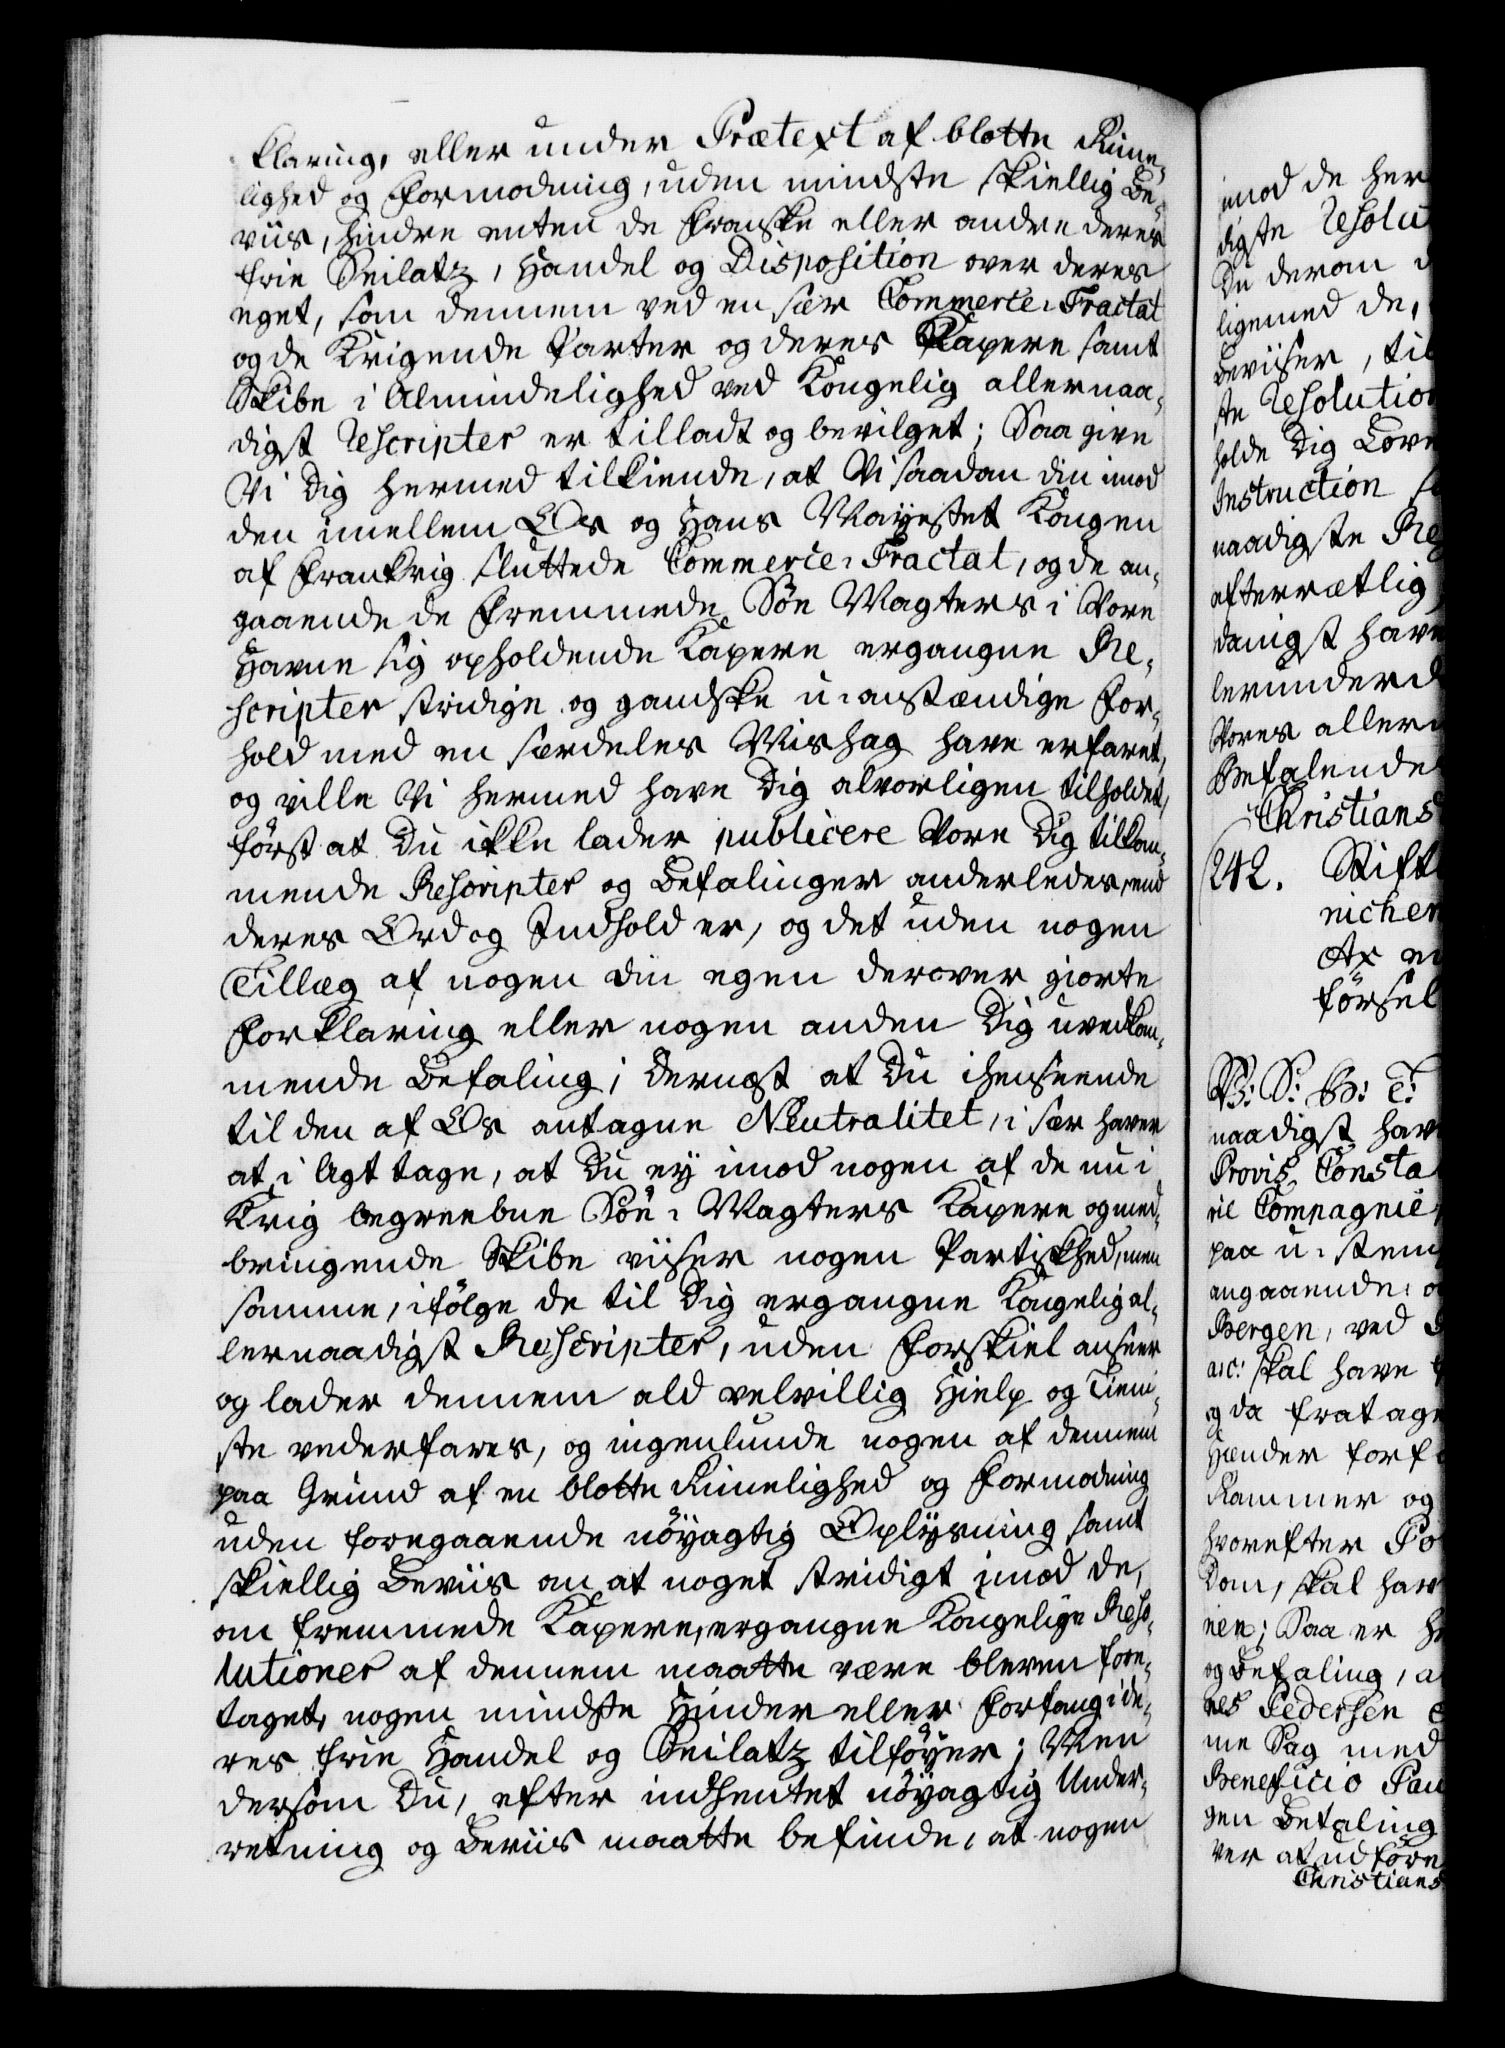 klaring, eller under Prætext af blotte Rime¬
lighed og Formodning, uden mindste skiellig Be¬
viis, hindre enten de Franske eller andre deres
frie Seilatz, Handel og Disposition over deres
eget, som dennem ved en sær Commerce-Tractat
og de Krigende Parter og deres Kapere samt
Skibe i Almindelighed ved Kongelig allernaa¬
digst Rescripter er tilladt og bevilget; Saa give
Vi Dig hermed tilkiende, at Vi saadan din imod
den imellem Os og Hans Mayestet Kongen
af Frankrig sluttede Commerce-Tractat, og de an¬
gaaende de Fremmede Søe Magters i Vore
Havne sig opholdende Kapere ergangne Re¬
scripter stridige og gandske u-anstændige For¬
hold med en særdeles Mishag have erfaret,
og ville Vi hermed have Dig alvorligen tilholdet,
først at Du ikke lader publicere Vore Dig tilkom¬
mende Rescripter og Befalinger anderledes, end
deres Ord og Indhold er, og det uden nogen
Tillæg af nogen din egen derover giorte
Forklaring eller nogen anden Dig uvedkom¬
mende Befaling; Dernæst at Du i henseende
til den af Os antagne Neutralitet, i sær haver
at i Agt tage, at Du ey imod nogen af de nu i
Krig begreebne Søe-Magters Kapere og med¬
bringende Skibe viiser nogen Partiskhed, men
samme, i følge de til Dig ergangne Kongelig al¬
lernaadigst Rescripter, uden Forskiel anseer
og lader dennem ald velvillig Hielp og Tieni¬
ste vederfares, og ingenlunde nogen af dennem
paa Grund af en blotte Rimelighed og Formodning
uden foregaaende nøyagtig Oplysning samt
skiellig Beviis om at noget stridigt imod de,
om fremmede Kapere, ergangne Kongelige Reso¬
lutioner af dennem maatte være bleven fore¬
taget, nogen mindste Hinder eller Forfang i de¬
res frie Handel og Seilatz tilføyer; Men
dersom Du, efter indhentet nøyagtig Under¬
retning og Beviis maatte befinde, at nogen
imod de her
digste Resolu
Du derom
ligemed de,
Beviiser, til
ste Resolution
holde Dig Vore
Instruction
naadigste Re
efterrætlig
danigst have
lerunderd
Vores allern
Befalende
Christians
242. Stift
nichen
Ax
førsel
V: S: G: T:
naadigst hav
Provis Consta
ril Compagnie
paa u-stem
angaaende
Bergen, ved
arc: skal have
og da fratage
Hænder forf
Kammer og
hvorefter Po
Dom, skal hav
nen; Saa er
og Befaling, a
nes Pedersen
me Sag med
Beneficio Pau
gen Betaling
ver at udføre
Christians